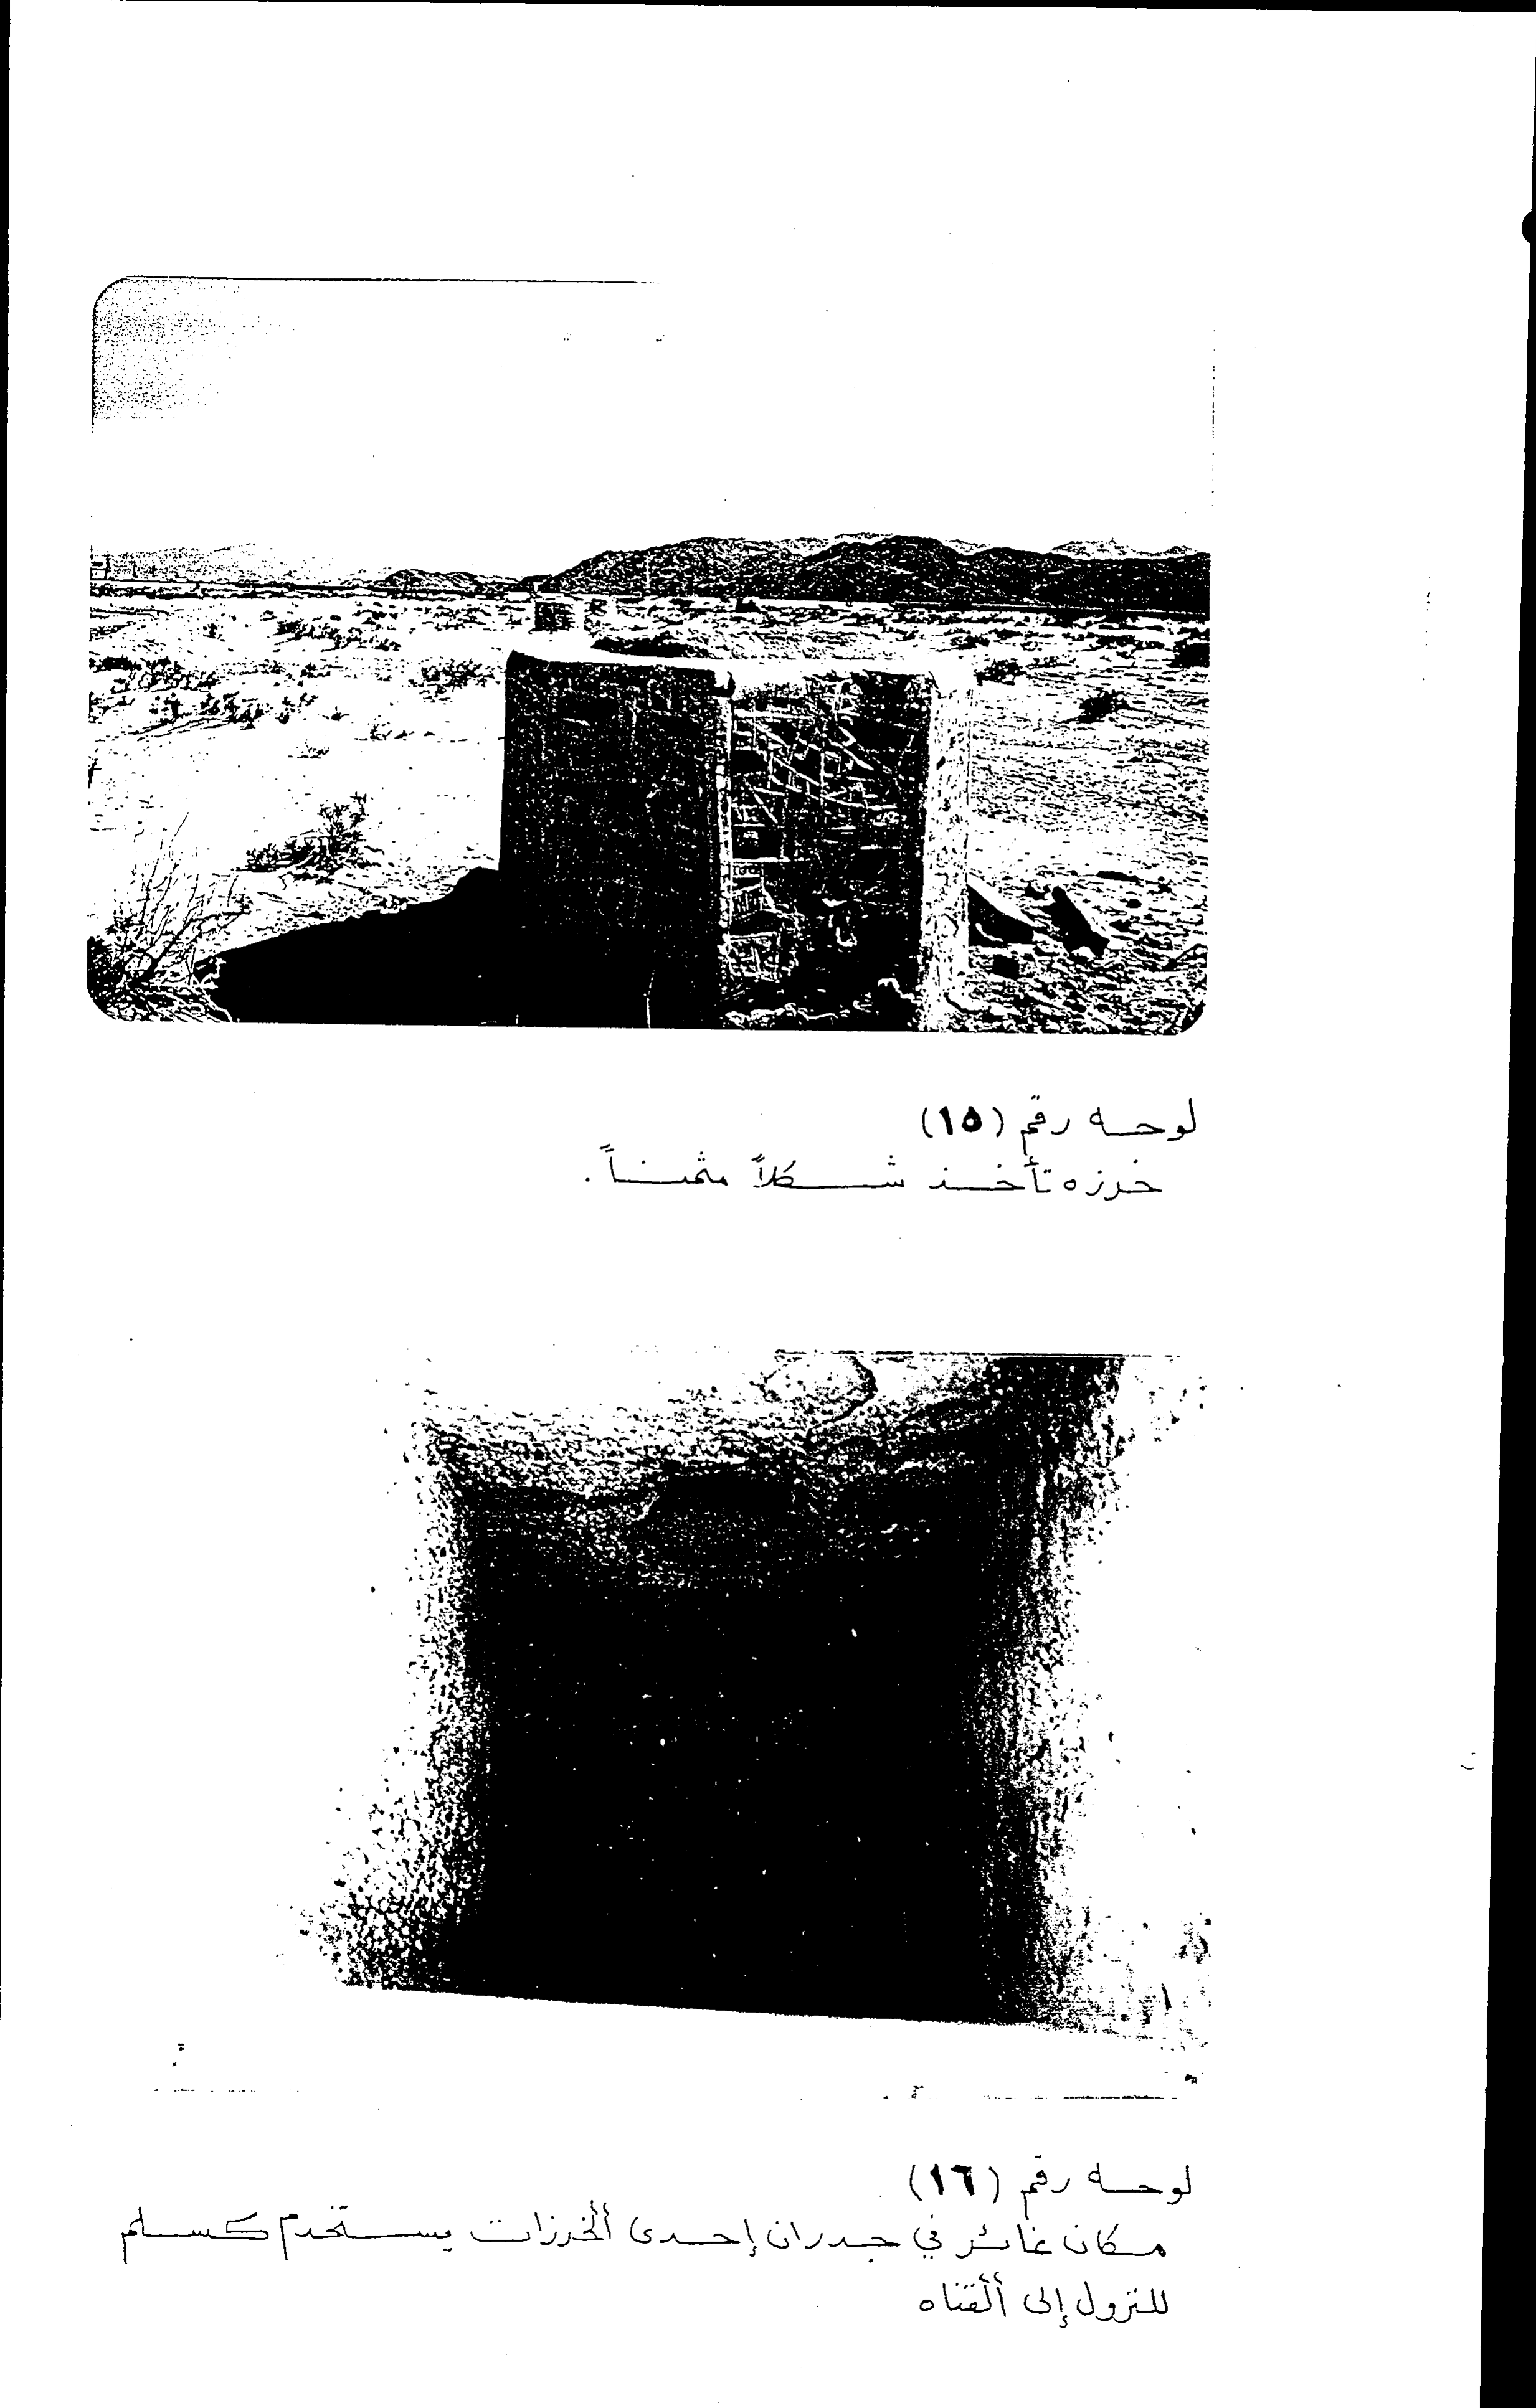 لوحه رقم (١٥)
خرزه تأخذ شكلاً مثمناً.
لوحه رقم (١٦)
مكان غائر في جدران إحدى ألخرزات يستخدم كسلم
للنزول إلى ألقناه